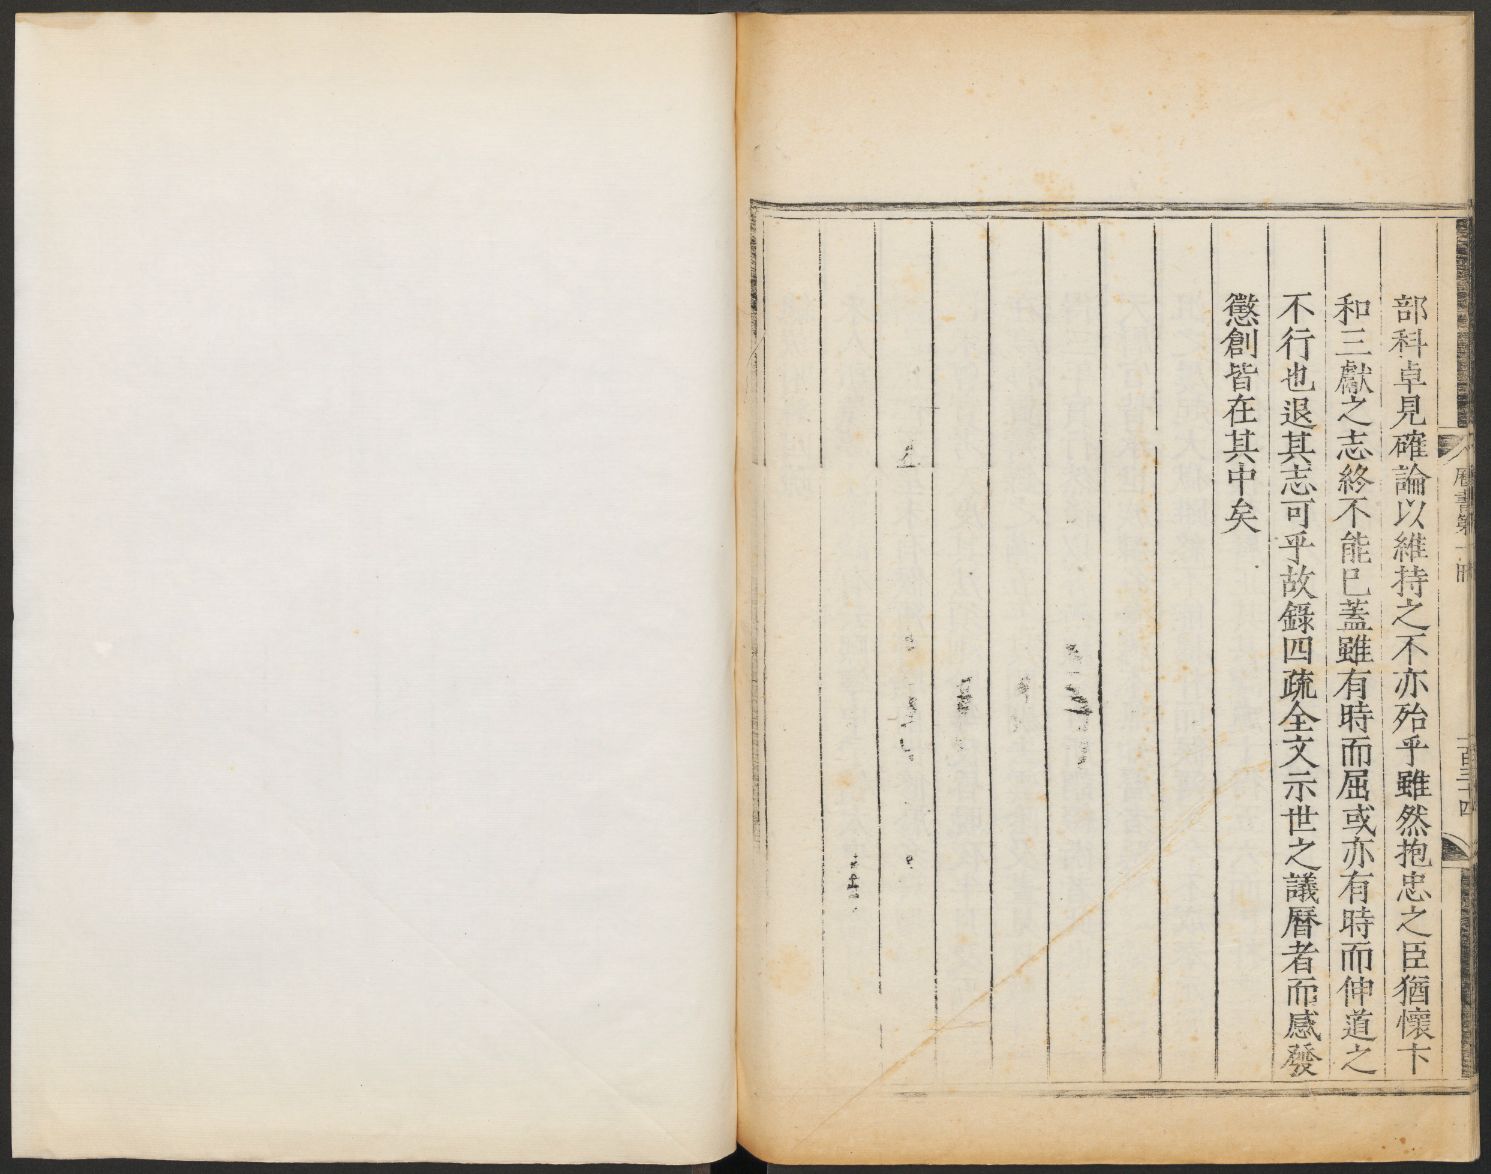 部科卓見確論以維持之不亦殆乎雖然抱忠之臣猶懷卞
和三獻之志終不能已蓋雖有時而屈或亦有時而伸道之
不行也退其志可乎故錄四疏全文示世之議曆者而感發
懲創皆在其中矣
曆書第
百三十四